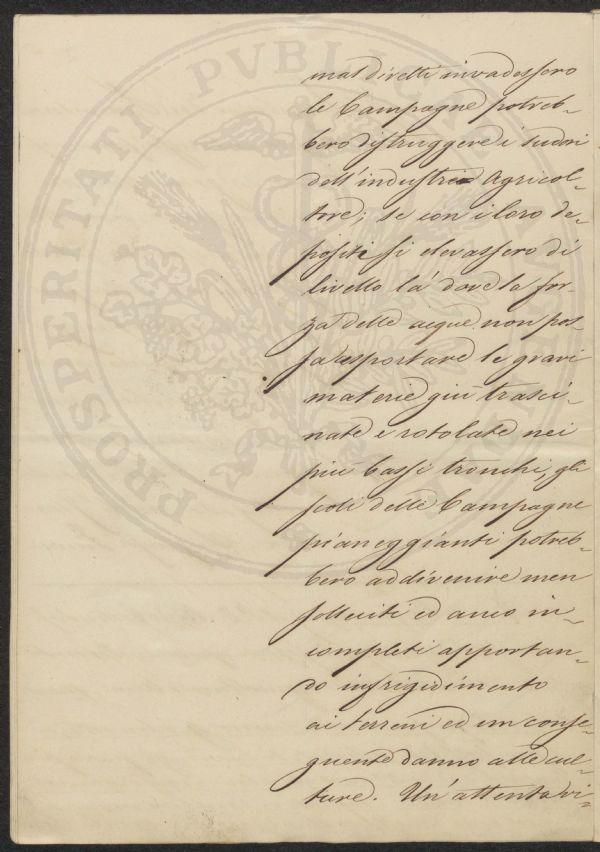 mal diretti invadessero
le Campagne potreb-
bero distruggere i sudori
dell'industre Agricol-
tore; se con i loro de-
positi si elevassero di
livello là dove la for-
za delle acque non pos-
sa esportare le gravi
materie giù trasci-
nate e rotolate nei
più bassi tronchi, gli
scoli delle Campagne
pianeggianti potreb-
bero addivenire men
solleciti ed anco in-
completi apportan-
do infrigidimento
ai terreni ed un conse-
guente danno alle cul-
ture. Un'attenta vi-
PROSPERITATI PVBLICAE